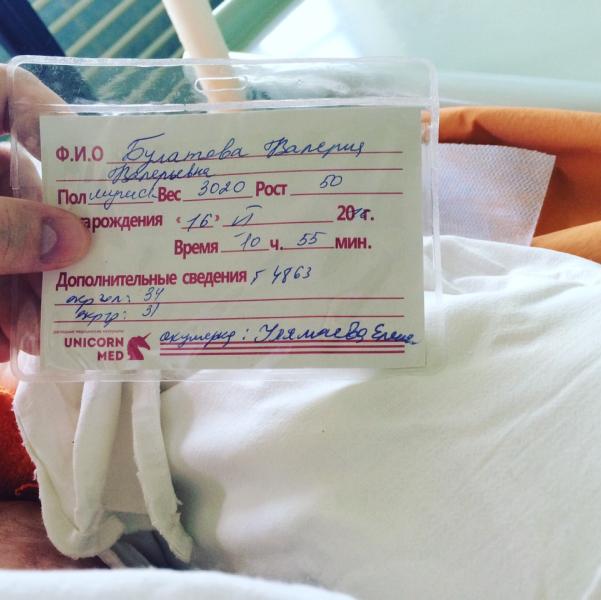 Ф.И.О Булатова Валерия
Валерьевна
Пол мужск Вес 3020 Рост 50
рождения «16» VI 20 г.
Время 10 ч. 55 мин.
Дополнительные сведения г 4863
окр гол: 34
окр гр: 31
UNICORN
MED
акушерка: Елена